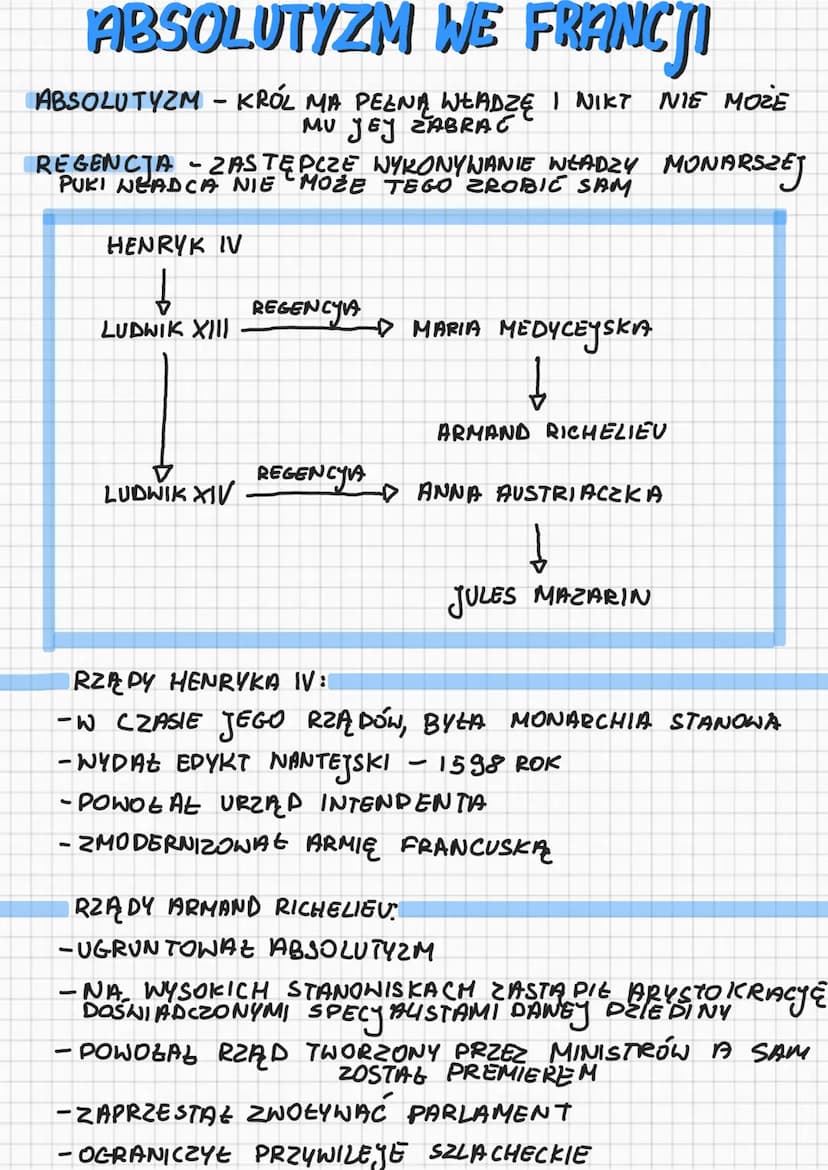 ABSOLUTYZM WE FRANCJI
ABSOLUTYZM – KRÓL MA PEŁNĄ WŁADZĘ I NIKT NIE MOŻE
MU JEJ ZABRAĆ
REGENCJA – ZASTĘPCZE WYKONYWANIE WŁADZY MONARSZEJ
PUKI WŁADCA NIE MOŻE TEGO ZROBIĆ SAM
HENRYK IV
LUDWIK XIII
REGENCYJA
MARIA MEDYCEJSKA
ARMAND RICHELIEU
LUDWIK XIV
REGENCYJA
ANNA AUSTRIACZKA
JULES MAZARIN
RZĄDY HENRYKA IV:
- W CZASIE JEGO RZĄDÓW, BYŁA MONARCHIA STANOWA
- WYDAŁ EDYKT NANTEJSKI – 1598 ROK
- POWOŁAŁ URZĄD INTENDENTA
- ZMODERNIZOWAŁ ARMIĘ FRANCUSKĄ
RZĄDY ARMAND RICHELIEU:
- UGRUNTOWAŁ ABSOLUTYZM
- NA WYSOKICH STANOWISKACH ZASTĄPIŁ ARYSTOKRACJĘ
DOŚWIADCZONYMI SPECJALISTAMI DANEJ DZIEDINY
- POWOŁAŁ RZĄD TWORZONY PRZEZ MINISTRÓW A SAM
ZOSTAŁ PREMIEREM
- ZAPRZESTAŁ ZWOŁYWAĆ PARLAMENT
- OGRANICZYŁ PRZYWILEJE SZLACHECKIE